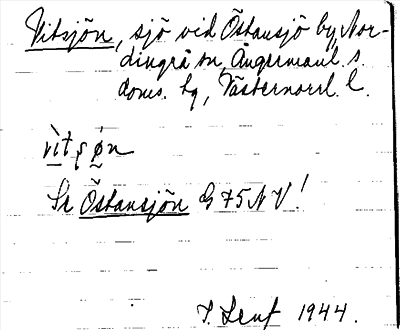 Vitsjön, sjö vid Östansjö by, Nor-
dingrå sn, Ångermanl. s.
doms. hg, Västernorrl. l.
vìtʂøn
Se Östansjön G 75 NV!
1944.